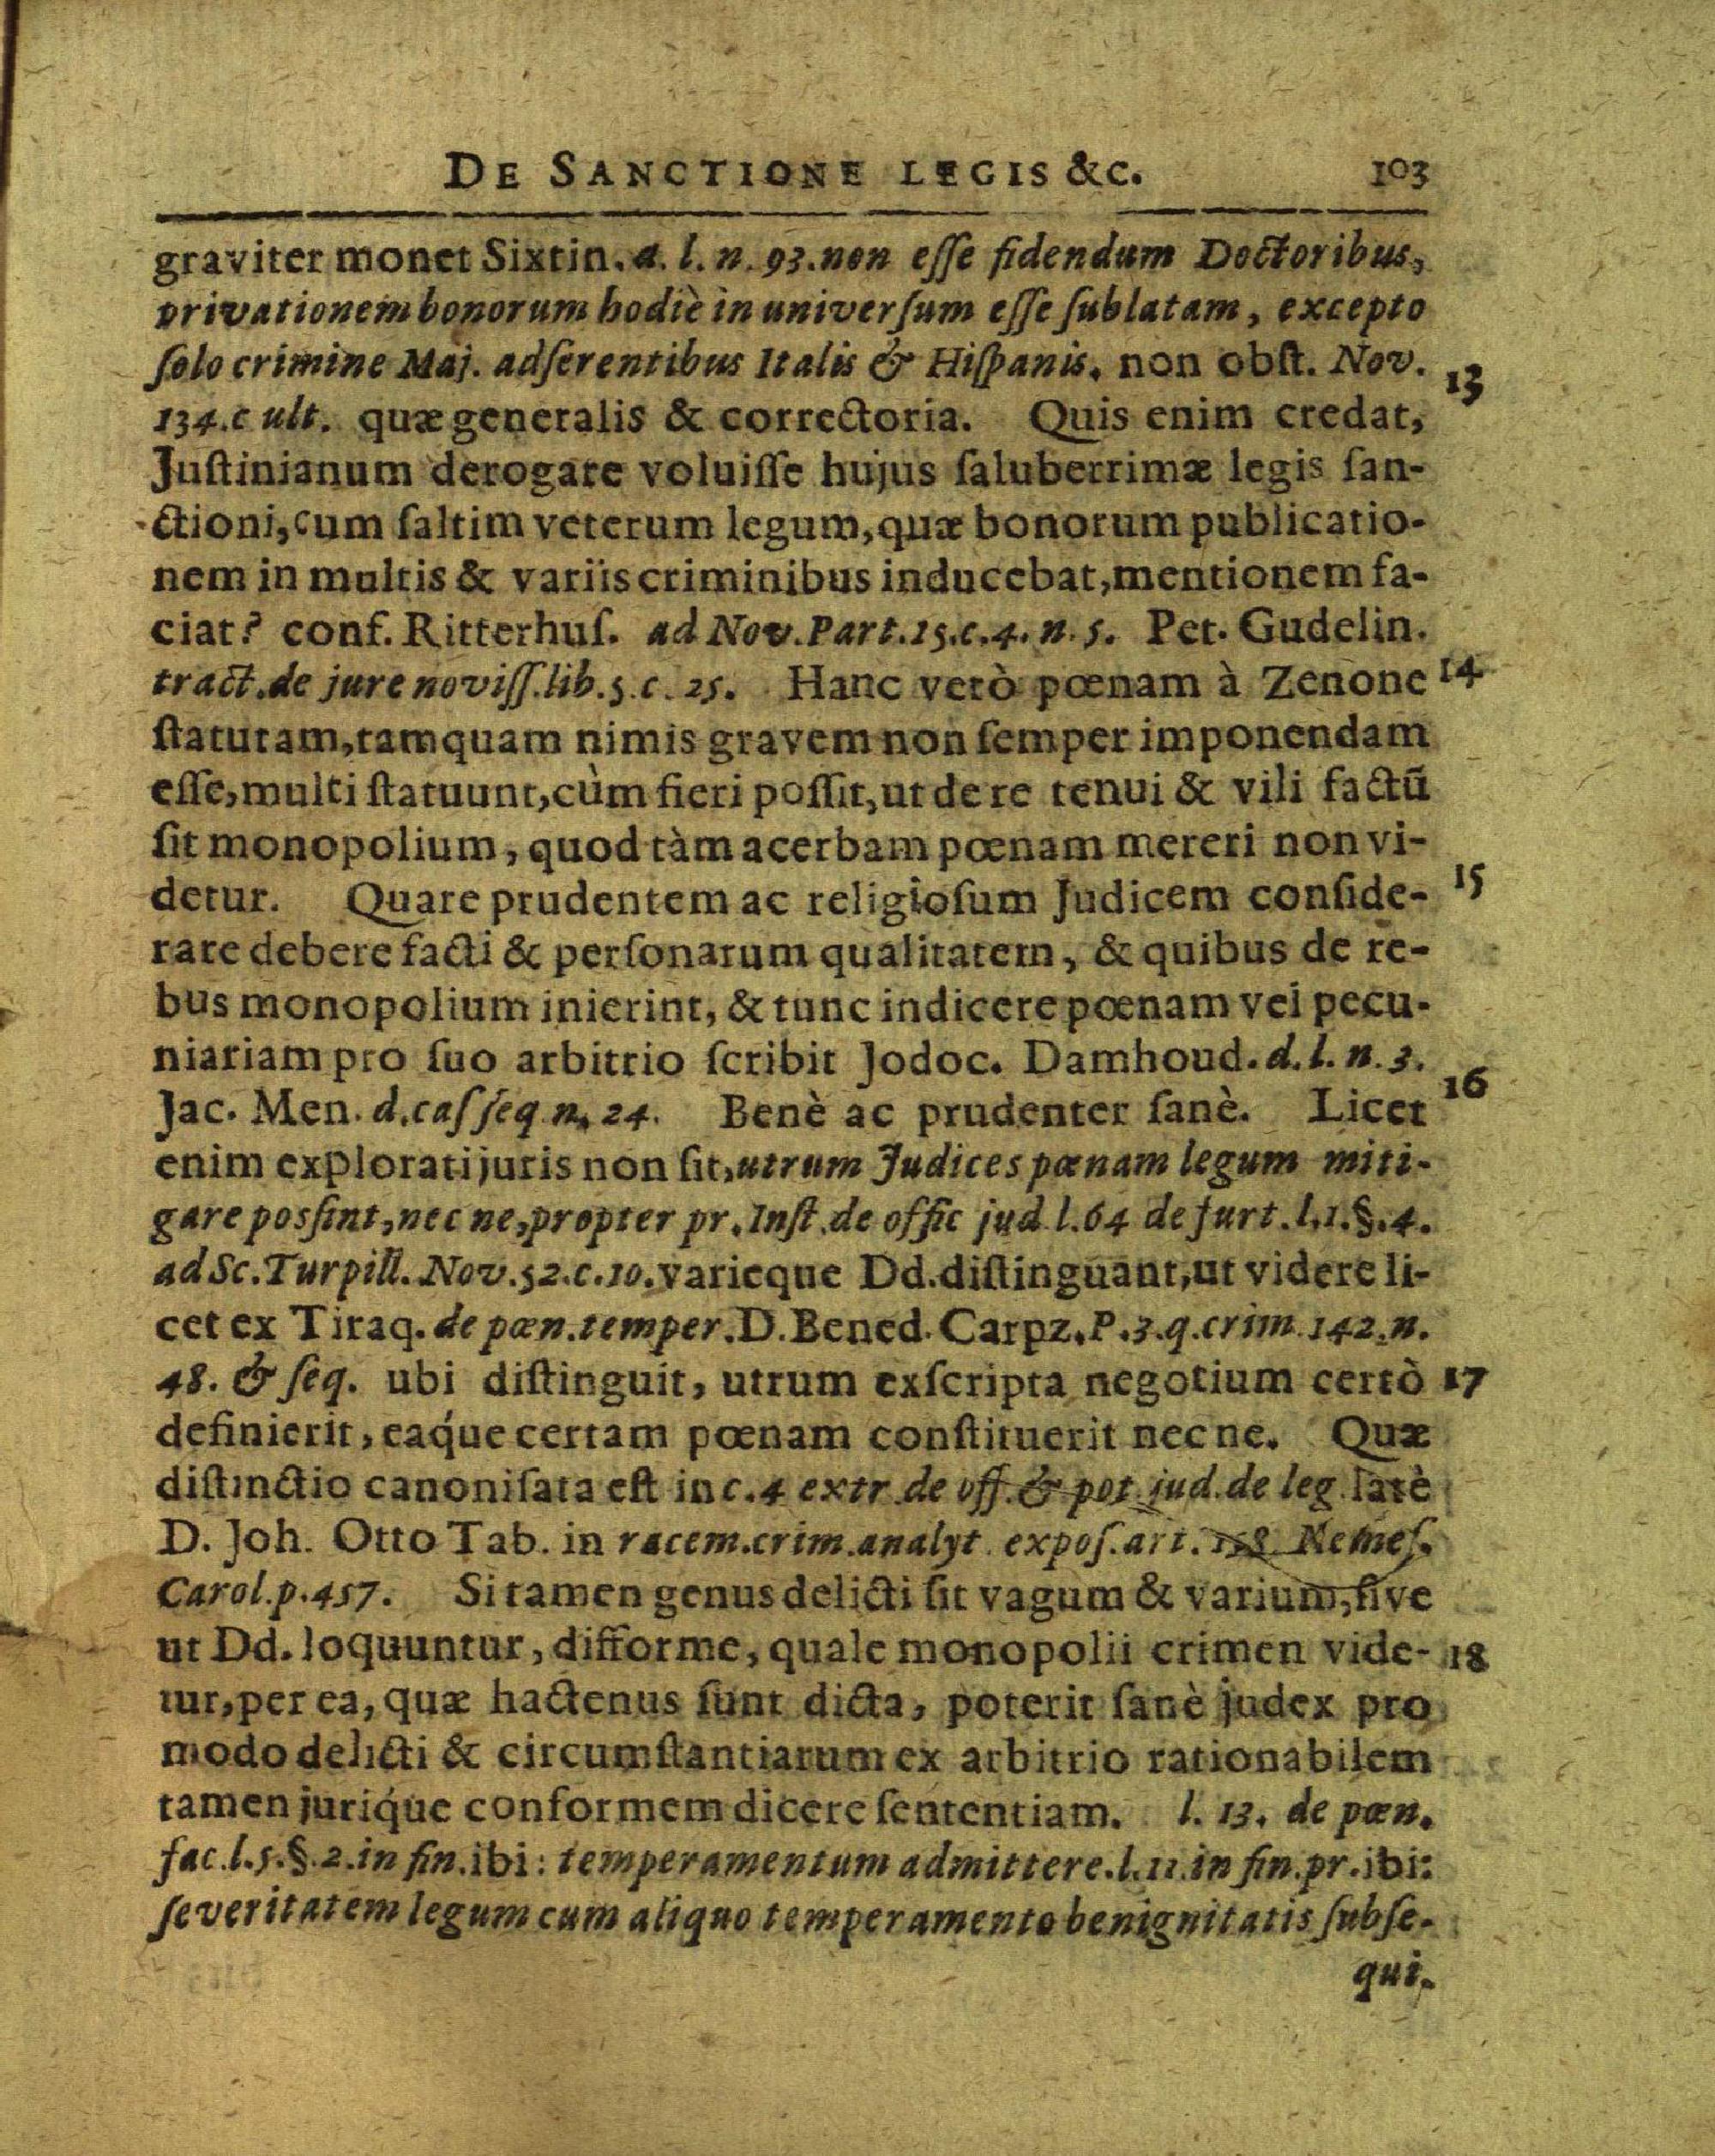 DE SANCTIONE LEGIS &c. 103
graviter monet Sixtin. a. l. n. 93. non eſſe fidendum Doctoribus,
privationem bonorum hodiè in univerſum eſſe ſublatam, excepto
ſolo crimine Maj. adſerentibus Italis & Hiſpanis. non obſt. Nov. 13
134. c ult. quæ generalis & correctoria. Quis enim credat,
Juſtinianum derogare voluiſſe hujus ſaluberrimæ legis ſan-
ctioni, cum ſaltim veterum legum, quæ bonorum publicatio-
nem in multis & variis criminibus inducebat, mentionem fa-
ciat? conf. Ritterhuſ. ad Nov. Part. 15. c. 4. n. 5. Pet. Gudelin.
tract. de jure noviſſ. lib. 5. c. 25. Hanc verò pœnam à Zenone 14
ſtatutam, tamquam nimis gravem non ſemper imponendam
eſſe, multi ſtatuunt, cùm fieri poſſit, ut de re tenui & vili factū
ſit monopolium, quod tàm acerbam pœnam mereri non vi-
detur. Quare prudentem ac religioſum Judicem conſide- 15
rare debere facti & perſonarum qualitatem, & quibus de re-
bus monopolium inierint, & tunc indicere pœnam vel pecu-
niariam pro ſuo arbitrio ſcribit Jodoc. Damhoud. d. l. n. 3.
Jac. Men. d. caſ ſeq n. 24. Benè ac prudenter ſanè. Licet 16
enim explorati juris non ſit, utrum Judices pœnam legum miti-
gare poſſint, nec ne, propter pr. Inſt. de offic jud. l. 64 de furt. l. 1. §. 4.
ad Sc. Turpill. Nov. 52. c. 10. varieque Dd. diſtinguant, ut videre li-
cet ex Tiraq. de pœn. temper. D. Bened. Carpz. P. 3. q. crim. 142. n.
48. & ſeq. ubi diſtinguit, utrum exſcripta negotium certò 17
definierit, eaq́ue certam pœnam conſtituerit nec ne. Quæ
diſtinctio canoniſata eſt in c. 4 extr. de off. & pot. jud. de leg. latè
D. Joh. Otto Tab. in racem. crim. analyt. expoſ. art. 158. Nemeſ.
Carol. p. 457. Si tamen genus delicti ſit vagum & varium, ſive
ut Dd. loquuntur, difforme, quale monopolii crimen vide- 18
tur, per ea, quæ hactenus ſunt dicta, poterit ſanè judex pro
modo delicti & circumſtantiarum ex arbitrio rationabilem
tamen juriq́ue conformem dicere ſententiam. l. 13. de pœn.
fac. l. 5. §. 2. in fin. ibi: temperamentum admittere. l. 11. in fin. pr. ibi:
ſeveritatem legum cum aliquo temperamento benignitatis ſubſe-
qui.